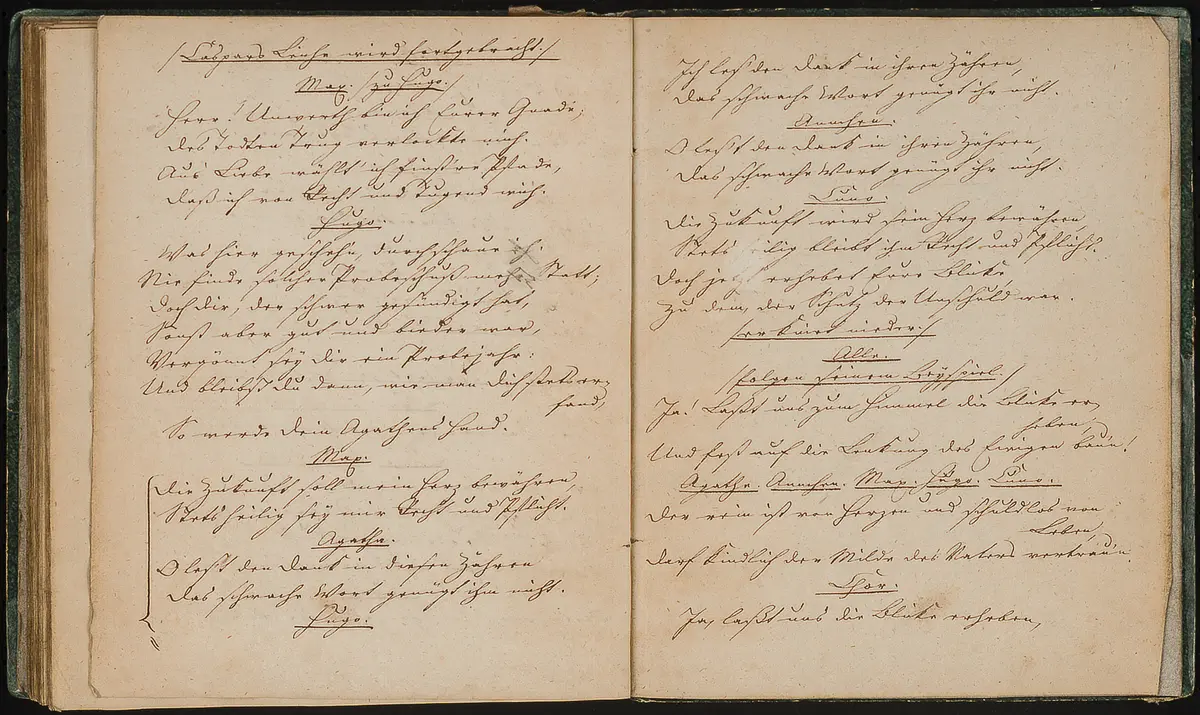 /Caspars Leiche wird fortgebracht./
Max. /zu Hugo./
Herr! Unwerth bin ich Eurer Gnade;
Des Todten Trug verlockte mich.
Aus Liebe wählt ich finstre Pfade,
Daß ich von Recht und Tugend wich.
Hugo.
Was hier geschehn, durchschaue ich;
Nie finde solcher Probeschuß mehr Statt;
Doch dir, der schwer gesündigt hat,
Sonst aber gut und bieder war,
Vergönnt sey dir ein Probejahr:
Und bleibst du dann, wie man dich stets er-
fand,
So werde dein Agathens Hand.
Max.
Die Zukunft soll mein Herz bewähren,
Stets heilig sey mir Recht und Pflicht.
Agathe.
O lest den Dank in diesen Zähren
Das schwache Wort genügt ihm nicht.
Hugo.
Ich les den Dank in ihren Zähren,
Das schwache Wort genügt ihr nicht.
Annchen.
O lest den Dank in ihren Zähren,
Das schwache Wort genügt ihr nicht.
Cuno.
Die Zukunft wird sein Herz bewähren,
Stets heilig bleibt ihm Recht und Pflicht.
Doch jetzt erhebet Eure Blicke
Zu dem, der Schutz der Unschuld war.
/er kniet nieder./
Alle.
/folgen seinem Beyspiel./
Ja! Laßt uns zum Himmel die Blicke er-
heben,
Und fest auf die Lenkung des Ewigen baun!
Agathe. Annchen. Max. Hugo. Cuno.
Der rein ist von Herzen und schuldlos von
Leben,
Darf kindlich der Milde des Vaters vertraun.
Chor.
Ja, laßt uns die Blicke erheben,